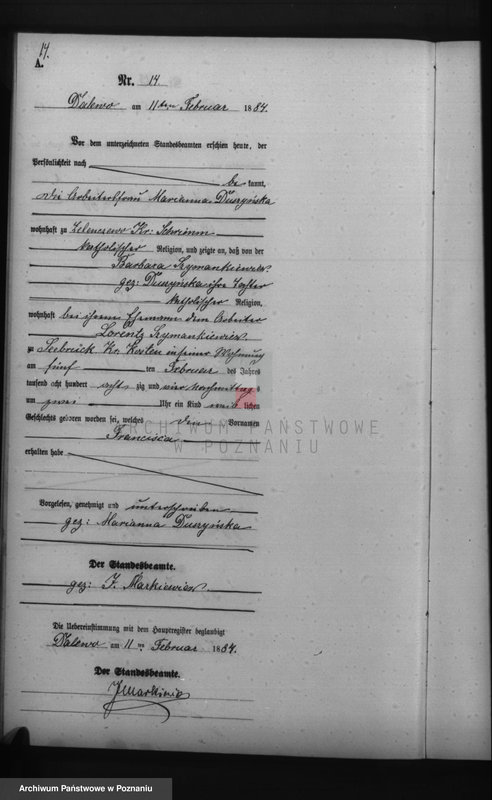 14.
A.
Nr. 14
Dalewo am 11ten Februar 1884.
Vor dem unterzeichneten Standesbeamten erschien heute, der
Persönlichkeit nach
be kannt,
die Arbeiterfrau Marianna Duszyńska
wohnhaft zu Kr: Schrimm
katholischer Religion, und zeigte an, daß von der
Barbara Szymankiewicz
geb: Duszyńska ihre Tochter
katholischer Religion,
wohnhaft bei ihrem Ehemann dem Arbeiter
Lorentz Szymankiewicz
zu Seebrück Kr. Kosten in seiner Wohnung
am fünf ten Februar des Jahres
tausend acht hundert acht zig und vier Nachmittag s
um zwei Uhr ein Kind weib lichen
Geschlechts geboren worden sei, welches den Vornamen
Francisca
erhalten habe
Vorgelesen, genehmigt und unterschrieben
gez: Marianna Duszyńska
Der Standesbeamte.
gez: J. Markiewicz
Die Uebereinstimmung mit dem Hauptregister beglaubigt
Dalewo am 11ten Februar 1884.
Der Standesbeamte.
ARCHIWUM PAŃSTWOWE
W POZNANIU
Archiwum Państwowe w Poznaniu